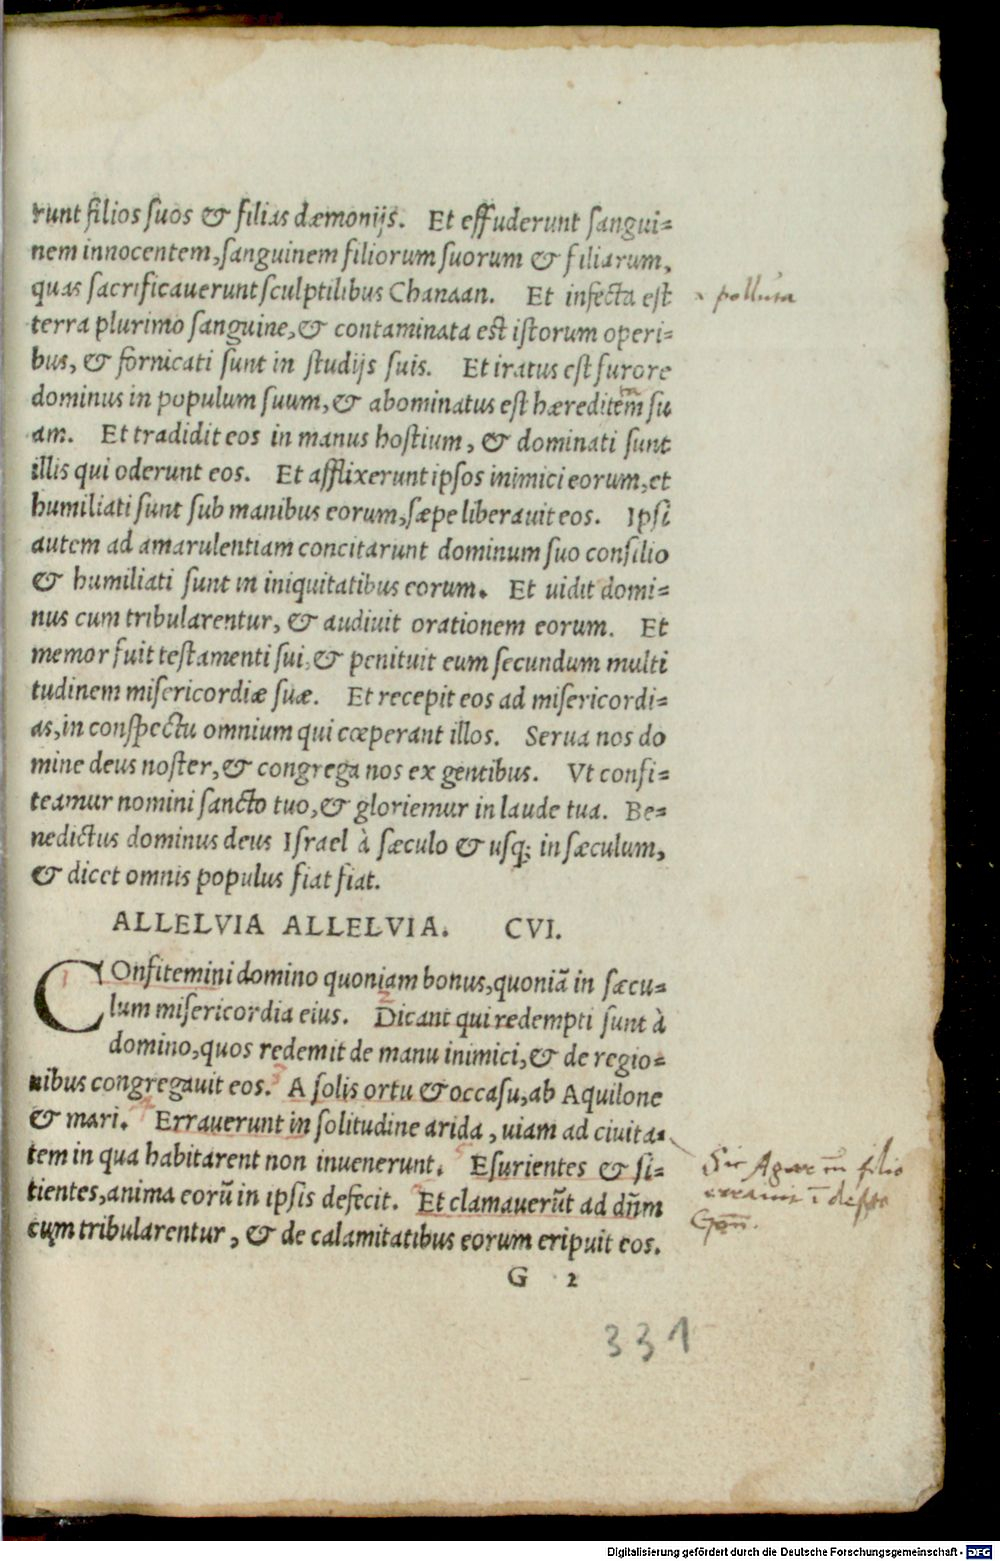 runt filios suos & filias dæmonijs. Et effuderunt sangui=
nem innocentem, sanguinem filiorum suorum & filiarum,
quas sacrificauerunt sculptilibus Chanaan. Et infecta est
polluta
terra plurimo sanguine, & contaminata est istorum operi=
bus, & fornicati sunt in studijs suis. Et iratus est furore
dominus in populum suum, & abominatus est hæreditem su
am. Et tradidit eos in manus hostium, & dominati sunt
illis qui oderunt eos. Et afflixerunt ipsos inimici eorum, et
humiliati sunt sub manibus eorum, sæpe liberauit eos. Ipsi
autem ad amarulentiam concitarunt dominum suo consilio
& humiliati sunt in iniquitatibus eorum. Et uidit domi=
nus cum tribularentur, & audiuit orationem eorum. Et
memor fuit testamenti sui, & penituit eum secundum multi
tudinem misericordiæ suæ. Et recepit eos ad misericordi=
as, in conspectu omnium qui cœperant illos. Serua nos do
mine deus noster, & congrega nos ex gentibus. Vt confi=
teamur nomini sancto tuo, & gloriemur in laude tua. Be=
nedictus dominus deus Israel à sæculo & usq; in sæculum,
& dicet omnis populus fiat fiat.
ALLELVIA ALLELVIA. CVI.
COnfitemini domino quoniam bonus, quoniā in sæcu=
lum misericordia eius. Dicant qui redempti sunt à
domino, quos redemit de manu inimici, & de regio=
nibus congregauit eos. A solis ortu & occasu, ab Aquilone
& mari. Errauerunt in solitudine arida, uiam ad ciuita=
tem in qua habitarent non inuenerunt. Esurientes & si=
tientes, anima eorū in ipsis defecit. Et clamauerūt ad dn̄m
cum tribularentur, & de calamitatibus eorum eripuit eos.
Sic Agar filio
G 2
331
Digitalisierung gefördert durch die Deutsche Forschungsgemeinschaft - DFG